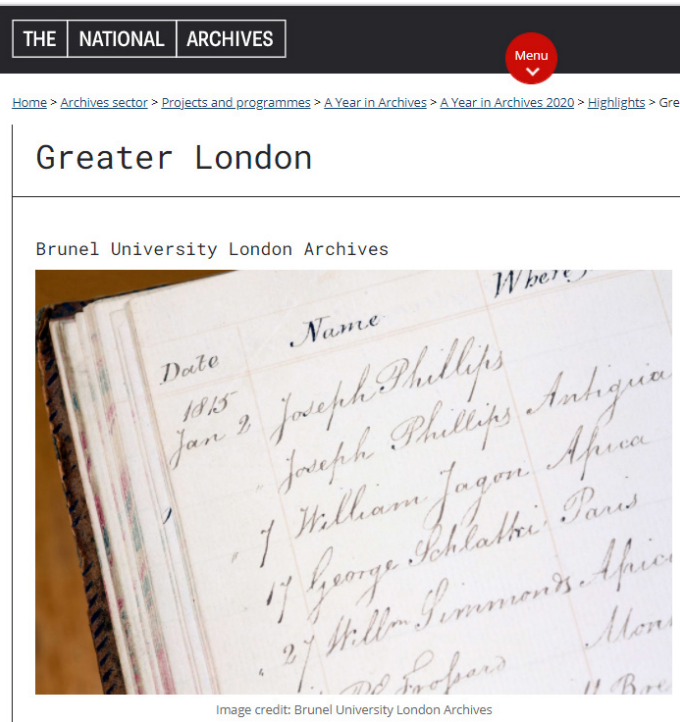 THE NATIONAL ARCHIVES
Menu
Home > Archives sector > Projects and programmes > A Year in Archives > A Year in Archives 2020 > Highlights > Gre
Greater London
Brunel University London Archives
Date Name Where
1815
Jan 2 Joseph Phillips
Joseph Phillips Antigua
7 William Jagon Africa
17 George Schlatki Paris
27 Willm Simmonds Afric
Frossard Mon
11 Bre
Image credit: Brunel University London Archives